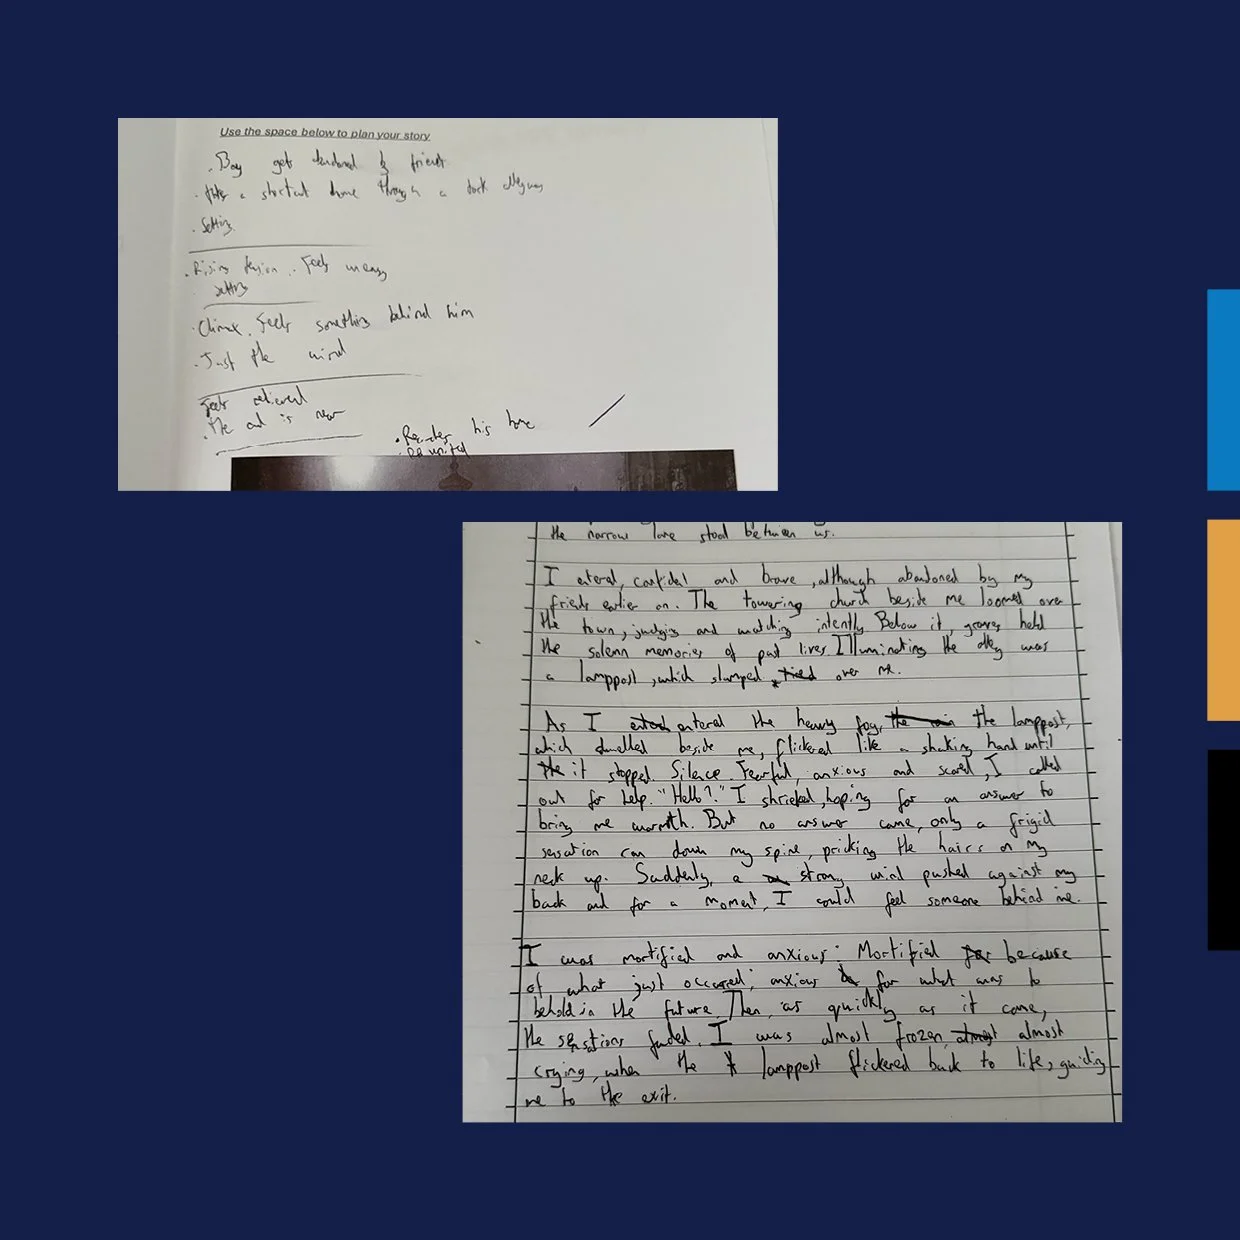 Use the space below to plan your story
. Boy gets abandoned by friends
. Takes a shortcut home through a dark alleyway
. Setting.
. Rising tension . Feels uneasy
setting
. Climax. Feels something behind him
. Just the wind
Feels relieved
. The end is near
. Reaches his home
. Reunited
the narrow lane stood between us.
I entered, confident and brave, although abandoned by my
friends earlier on. The towering church beside me loomed over
the town, judging and watching intently. Below it, graves held
the solemn memories of past lives. Illuminating the alley was
a lamppost, which slumped over me.
As I entered the heavy fog, the lamppost,
which dwelled beside me, flickered like a shaking hand until
it stopped. Silence. Fearful, anxious and scared, I called
out for help. "Hello?" I shrieked, hoping for an answer to
bring me warmth. But no answer came, only a frigid
sensation ran down my spine, pricking the hairs on my
neck up. Suddenly, a strong wind pushed against my
back and for a moment, I could feel someone behind me.
I was mortified and anxious: Mortified because
of what just occurred; anxious for what was to
behold in the future. Then, as quickly as it came,
the sensations faded. I was almost frozen, almost
crying, when the lamppost flickered back to life, guiding
me to the exit.